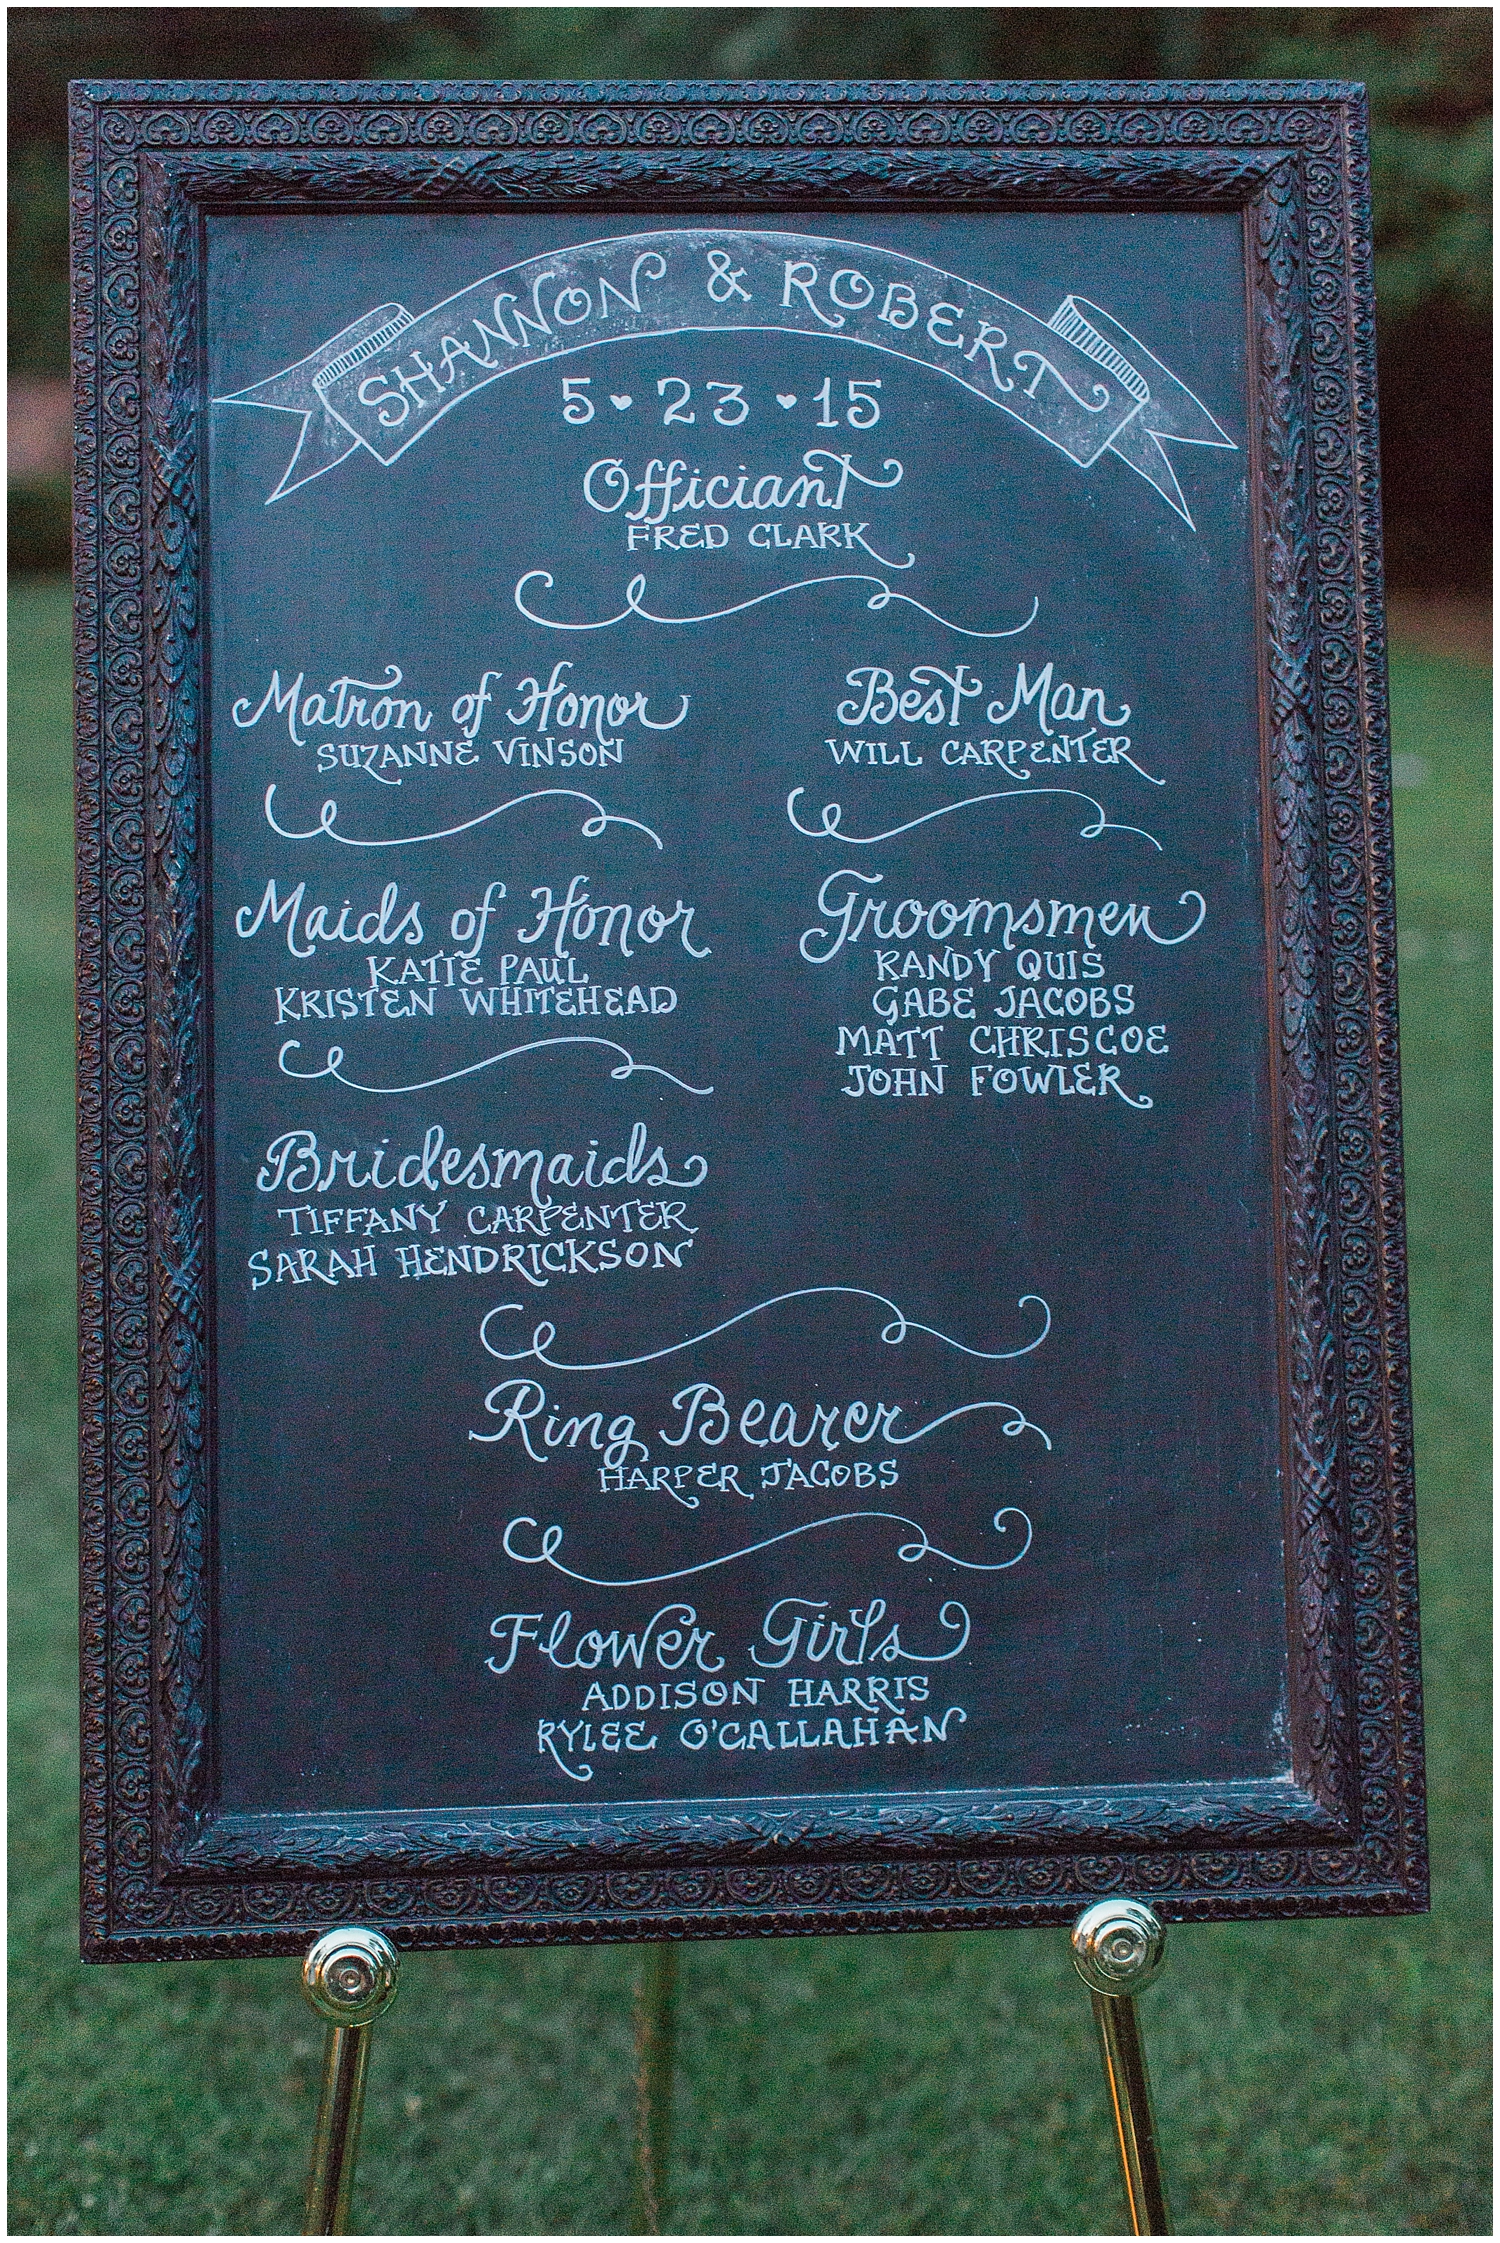 SHANNON & ROBERT
5 ♥ 23 ♥ 15
Officiant
FRED CLARK
Matron of Honor
SUZANNE VINSON
Maids of Honor
KATIE PAUL
KRISTEN WHITEHEAD
Bridesmaids
TIFFANY CARPENTER
SARAH HENDRICKSON
Best Man
WILL CARPENTER
Groomsmen
RANDY QUIS
GABE JACOBS
MATT CHRISCOE
JOHN FOWLER
Ring Bearer
HARPER JACOBS
Flower Girls
ADDISON HARRIS
RYLEE O'CALLAHAN